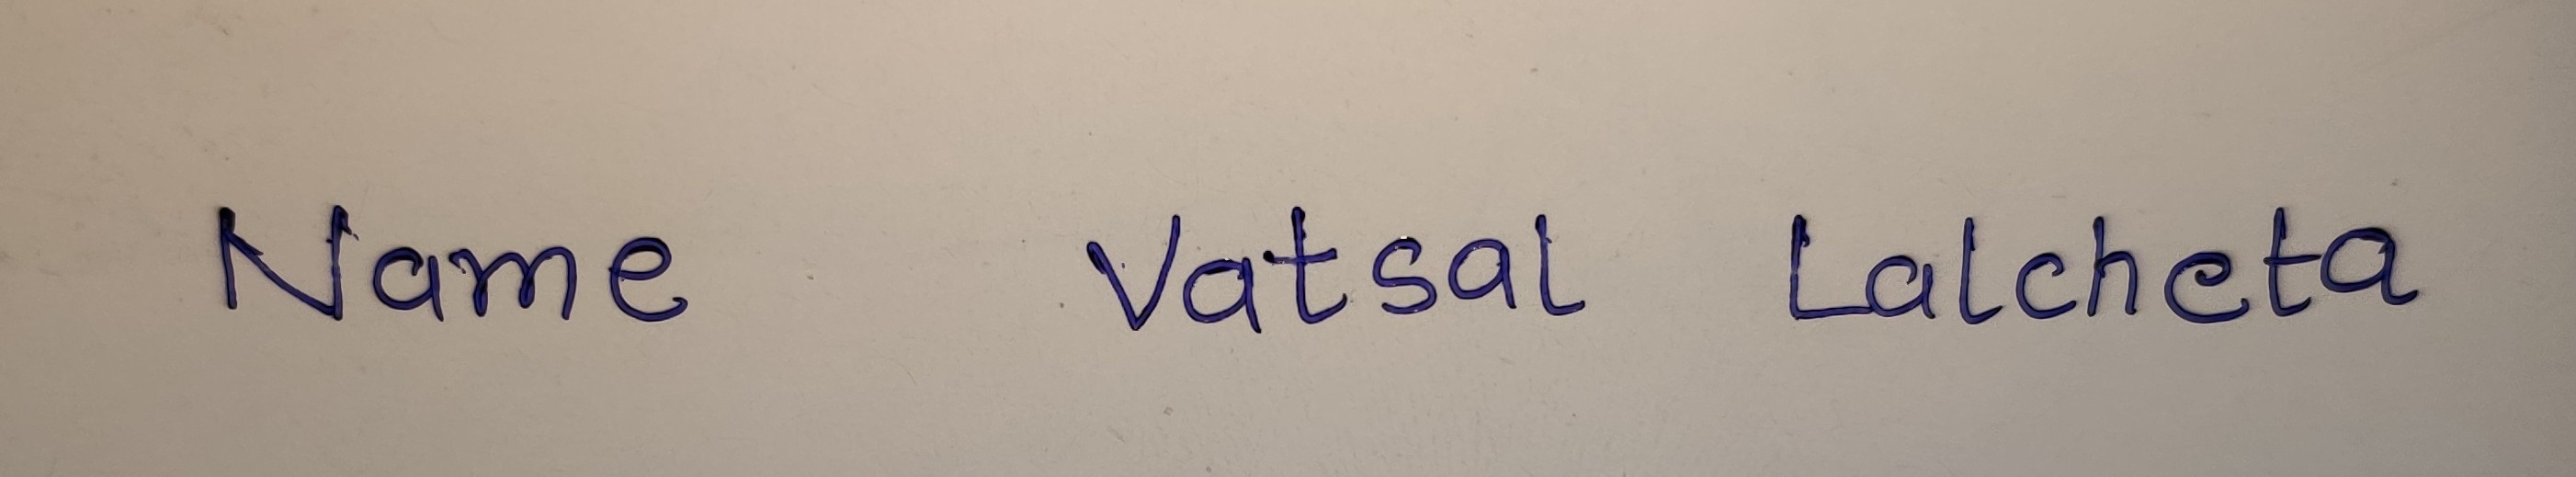 Name Vatsal Lalcheta